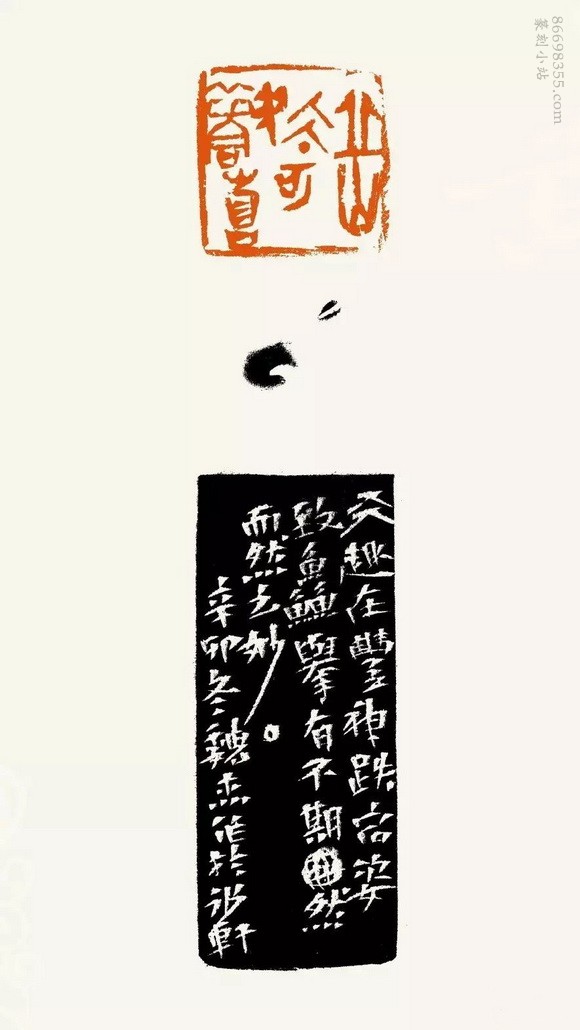 86698355.com
篆刻小站
天趣在豐神跌宕姿
致鱻舉有不期然
而然之妙。
辛卯冬魏杰作於軒